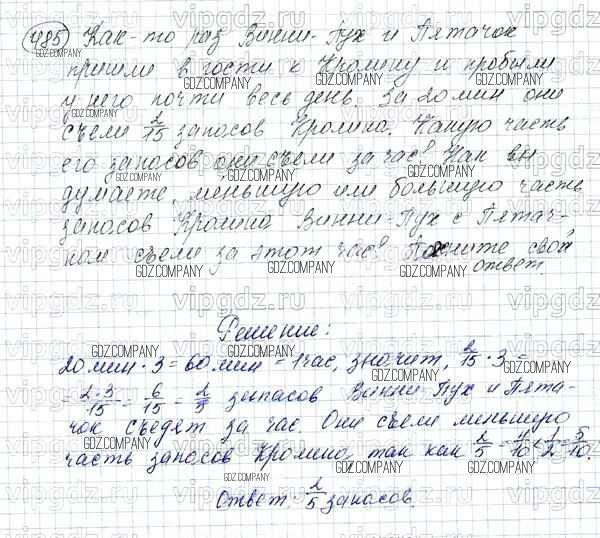 485) Как-то раз Винни-Пух и Пятачок
пришли в гости к Кролику и пробыли
у него почти весь день. За 20 мин они
съели 2/15 запасов Кролика. Какую часть
его запасов они съели за час? Как вы
думаете, меньшую или большую часть
запасов Кролика Винни-Пух с Пятач-
ком съели за этот час? Поясните свой
ответ
Решение:
20 мин · 3 = 60 мин = 1 час, значит, 2/15 · 3 =
= 2·3/15 = 6/15 = 2/5 запасов Винни-Пух и Пята-
чок съедят за час. Они съели меньшую
часть запасов Кролика, так как 2/5 = 4/10 < 1/2 = 5/10.
Ответ: 2/5 запасов.